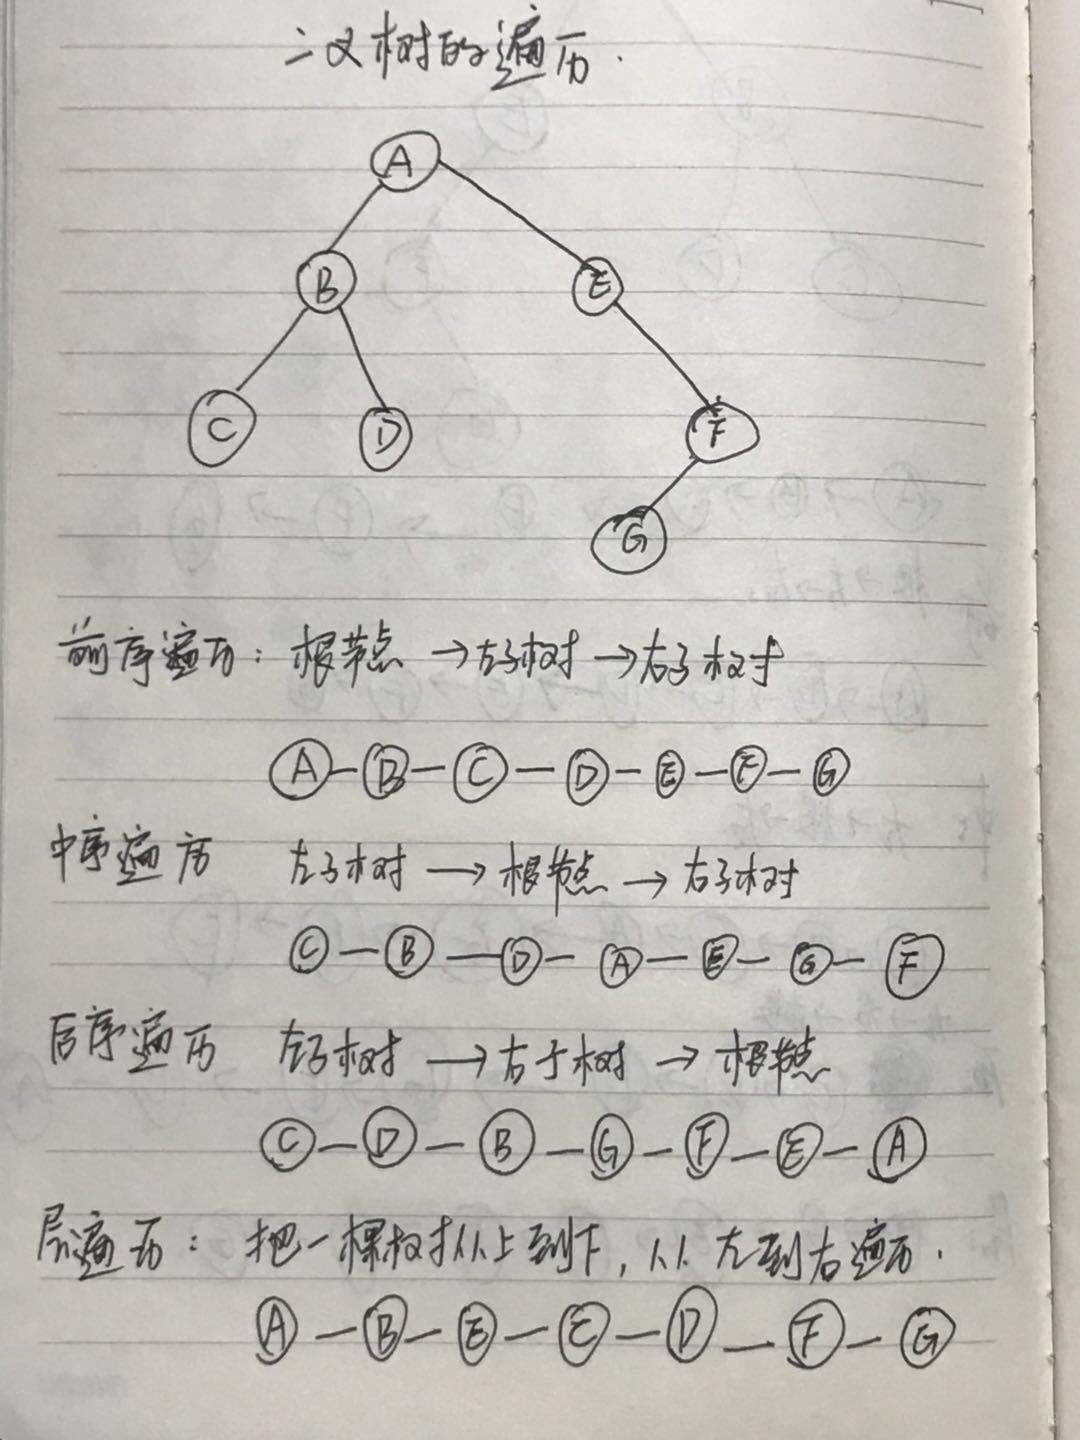 二叉树的遍历.
A
B E
C D F
G
前序遍历: 根节点 →左子树 →右子树
A—B—C—D—E—F—G
中序遍历 左子树 →根节点→右子树
C—B—D—A—E—G—F
后序遍历 左子树 →右子树 →根节点
C—D—B—G—F—E—A
层遍历: 把一棵树从上到下, 从左到右遍历.
A—B—E—C—D—F—G